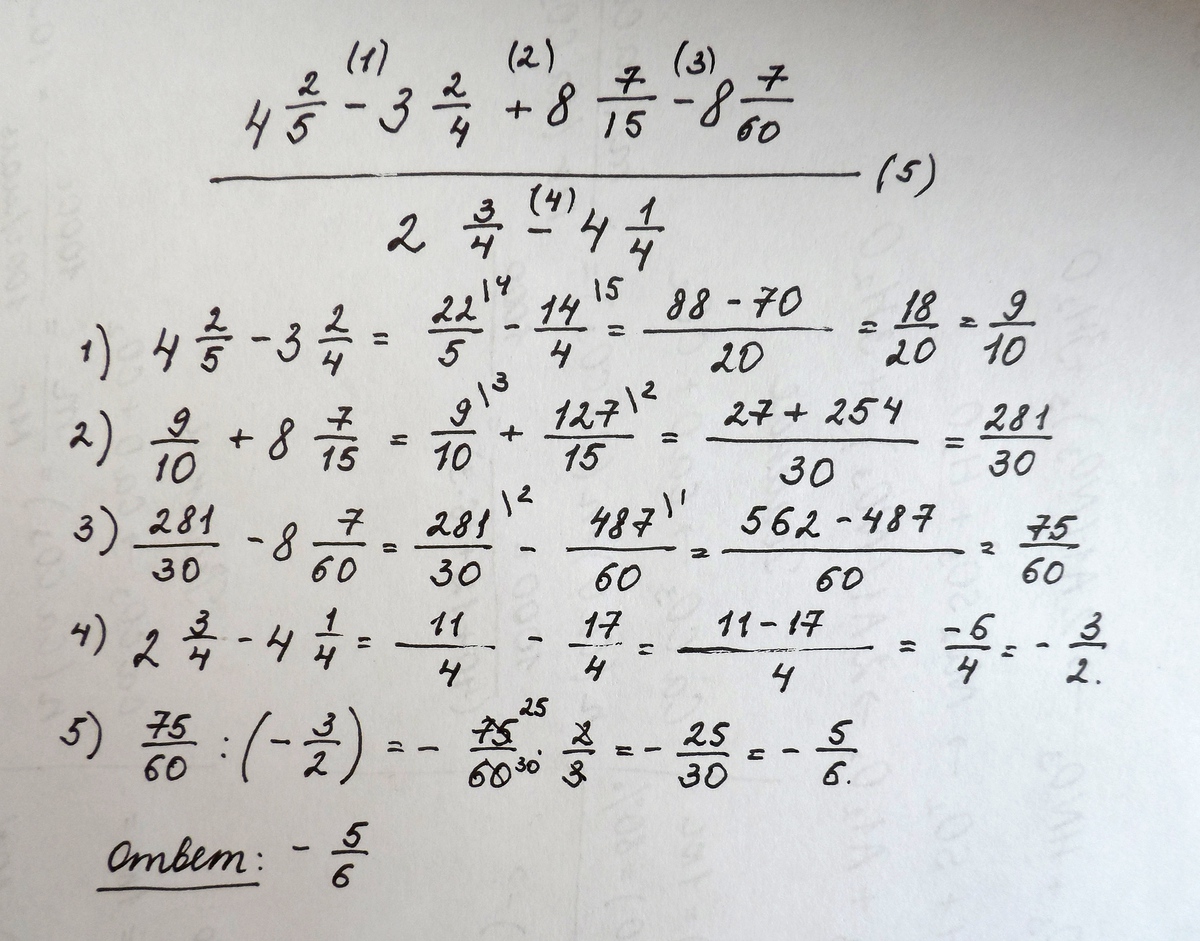 (1) (2) (3)
4 2/5 - 3 2/4 + 8 7/15 - 8 7/60
(5)
(4)
2 3/4 - 4 1/4
1) 4 2/5 - 3 2/4 = 22/5 \4 - 14/4 \5 = 88 - 70/20 = 18/20 = 9/10
2) 9/10 + 8 7/15 = 9/10 \3 + 127/15 \2 = 27 + 254/30 = 281/30
3) 281/30 - 8 7/60 = 281/30 \2 - 487/60 \1 = 562 - 487/60 = 75/60
4) 2 3/4 - 4 1/4 = 11/4 - 17/4 = 11 - 17/4 = -6/4 = - 3/2.
5) 75/60 : (- 3/2) = - 75 25/60 30 · 2/3 = - 25/30 = - 5/6.
Ответ: - 5/6